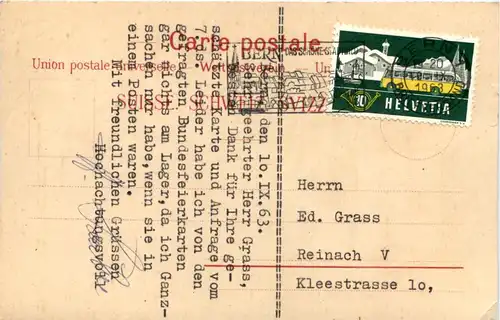 Carte postale
Union postale universelle Weltpostverein Un
BERN
HELVETIA
10
Bern, den 10.IX.63.
Sehr geehrter Herr Grass,
Besten Dank für Ihre ge-
schätzte Karte und Anfrage vom
7.ds. Leider habe ich von den
gefragten Bundesfeierkarten
gar nichts am Lager, da ich Ganz-
sachen nur habe, wenn sie in
einem Posten waren.
Mit freundlichen Grüssen
Hochachtungsvoll
Herrn
Ed. Grass
Reinach V
Kleestrasse 1o,